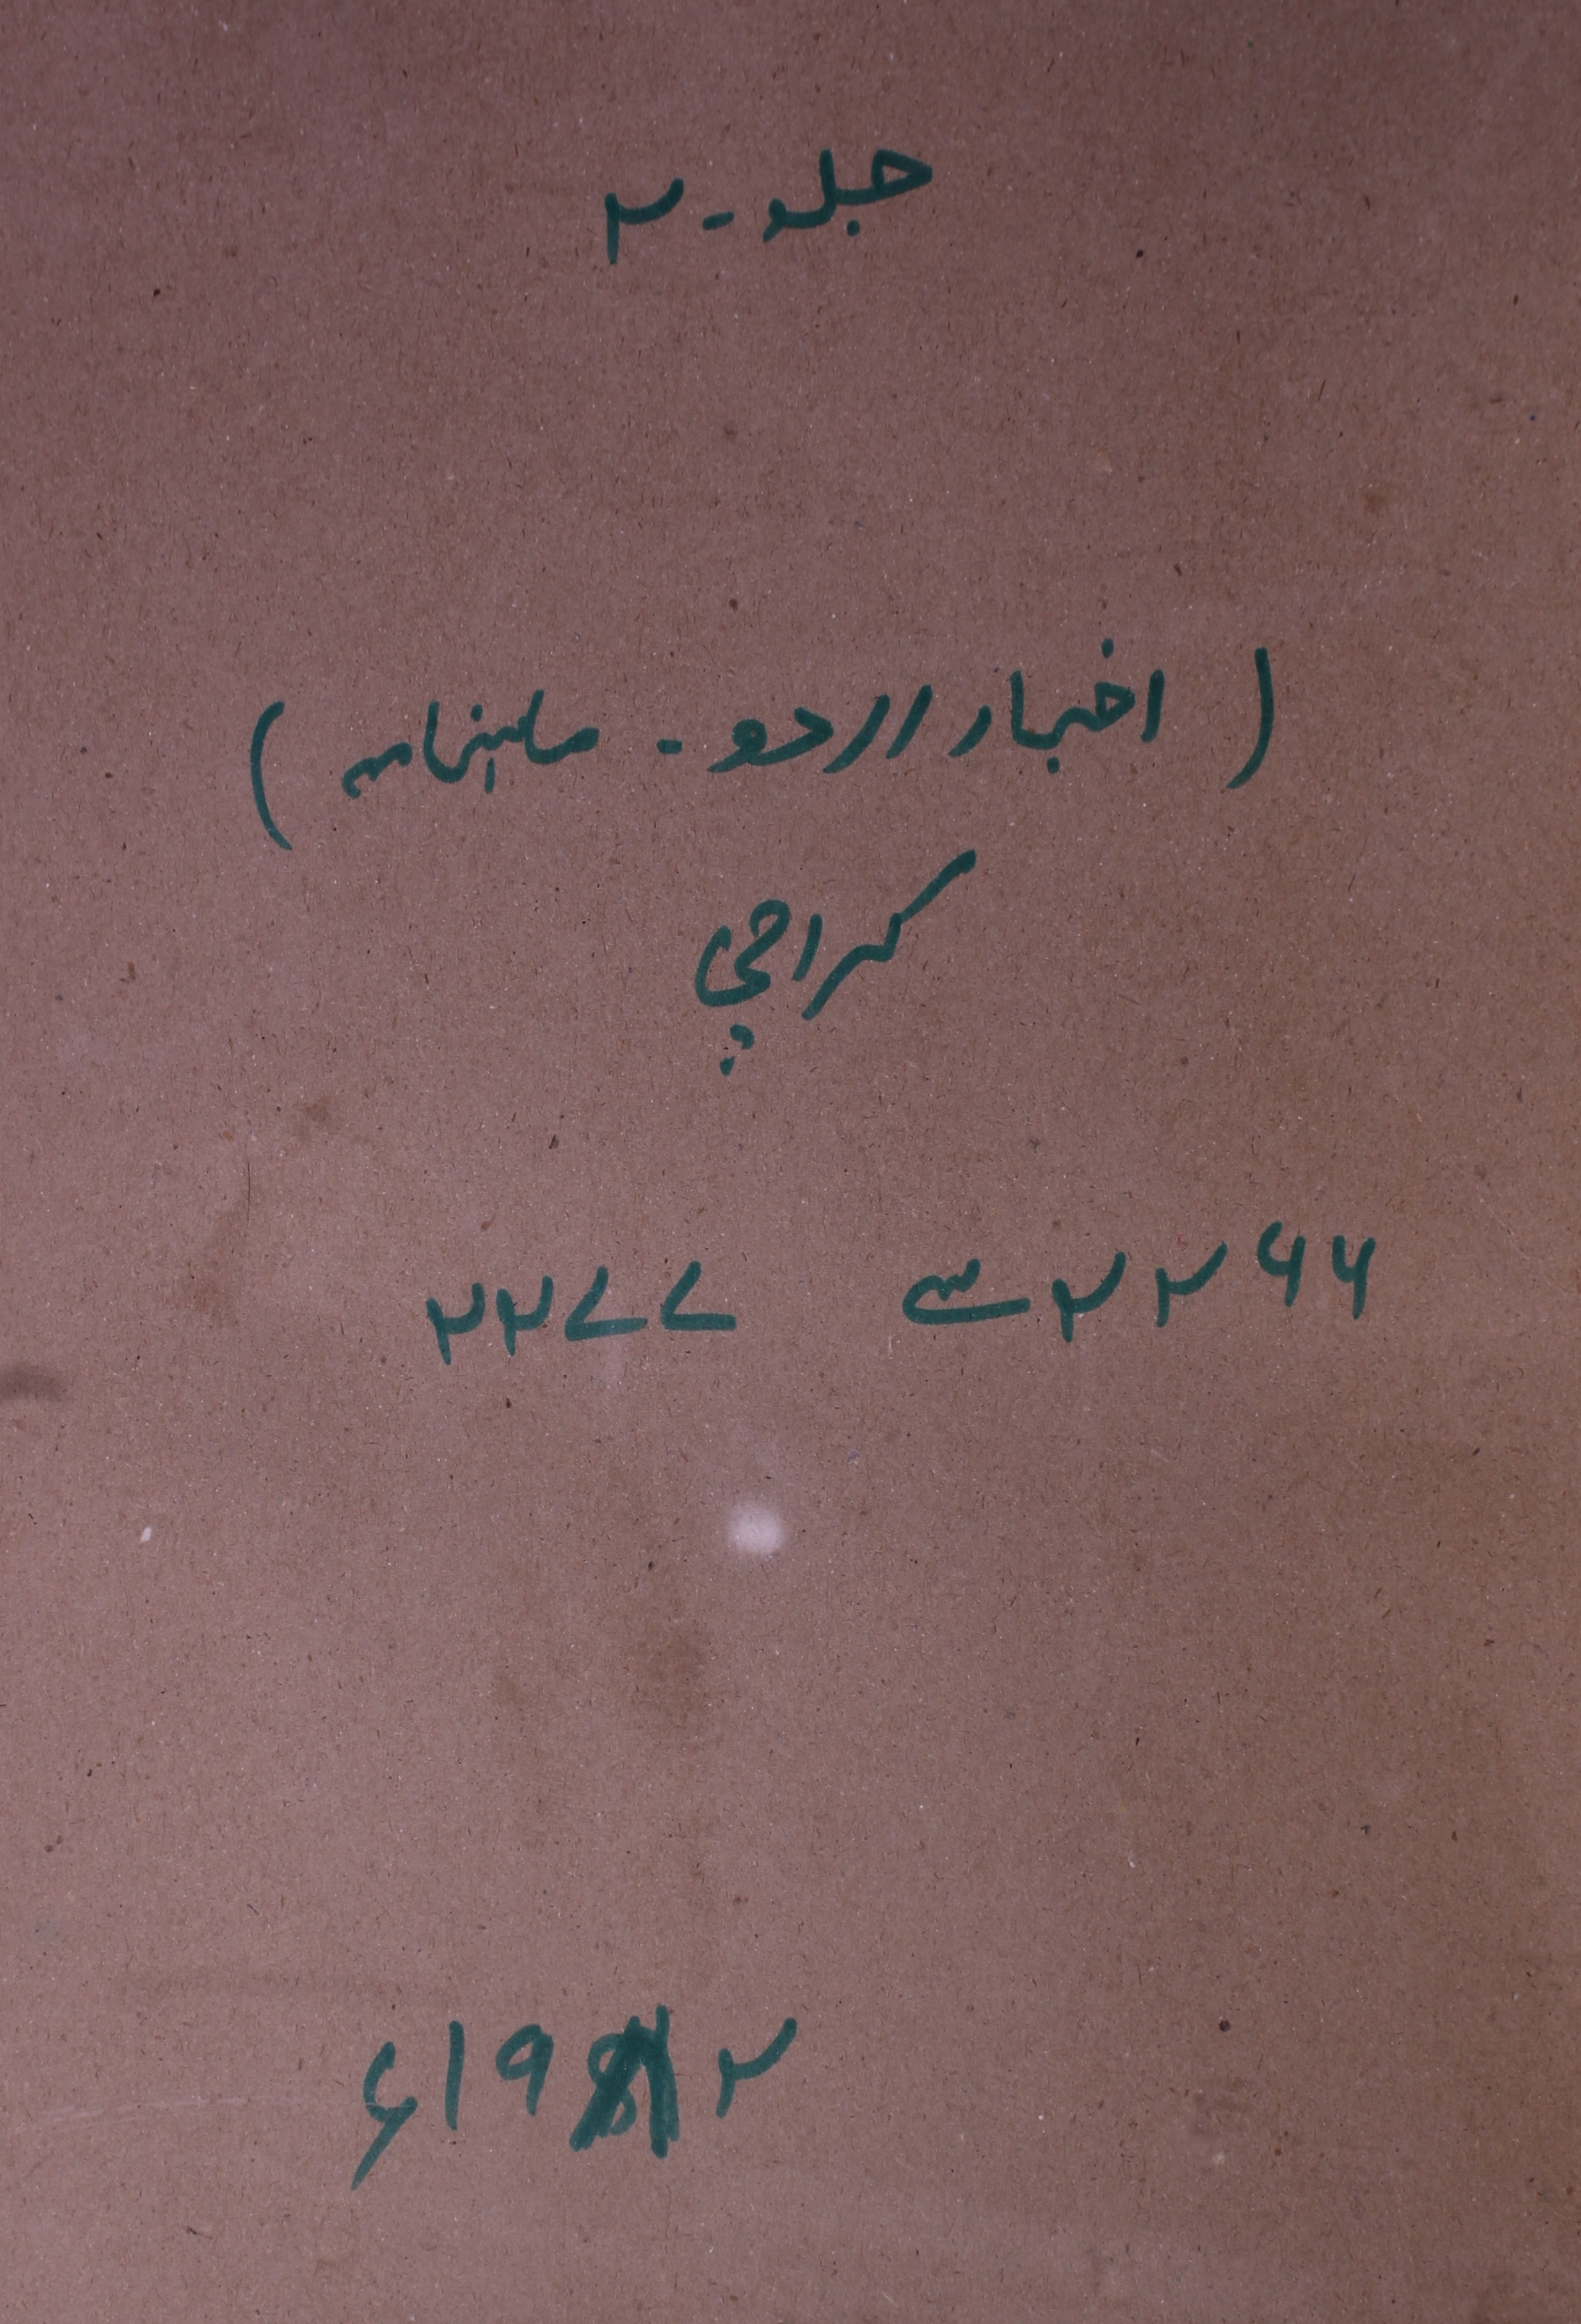 جلد - ۲
( اخبار اردو - ماہنامہ )
کراچی
۲۲۶۶ سے ۲۲۷۷
۱۹۸۲ء